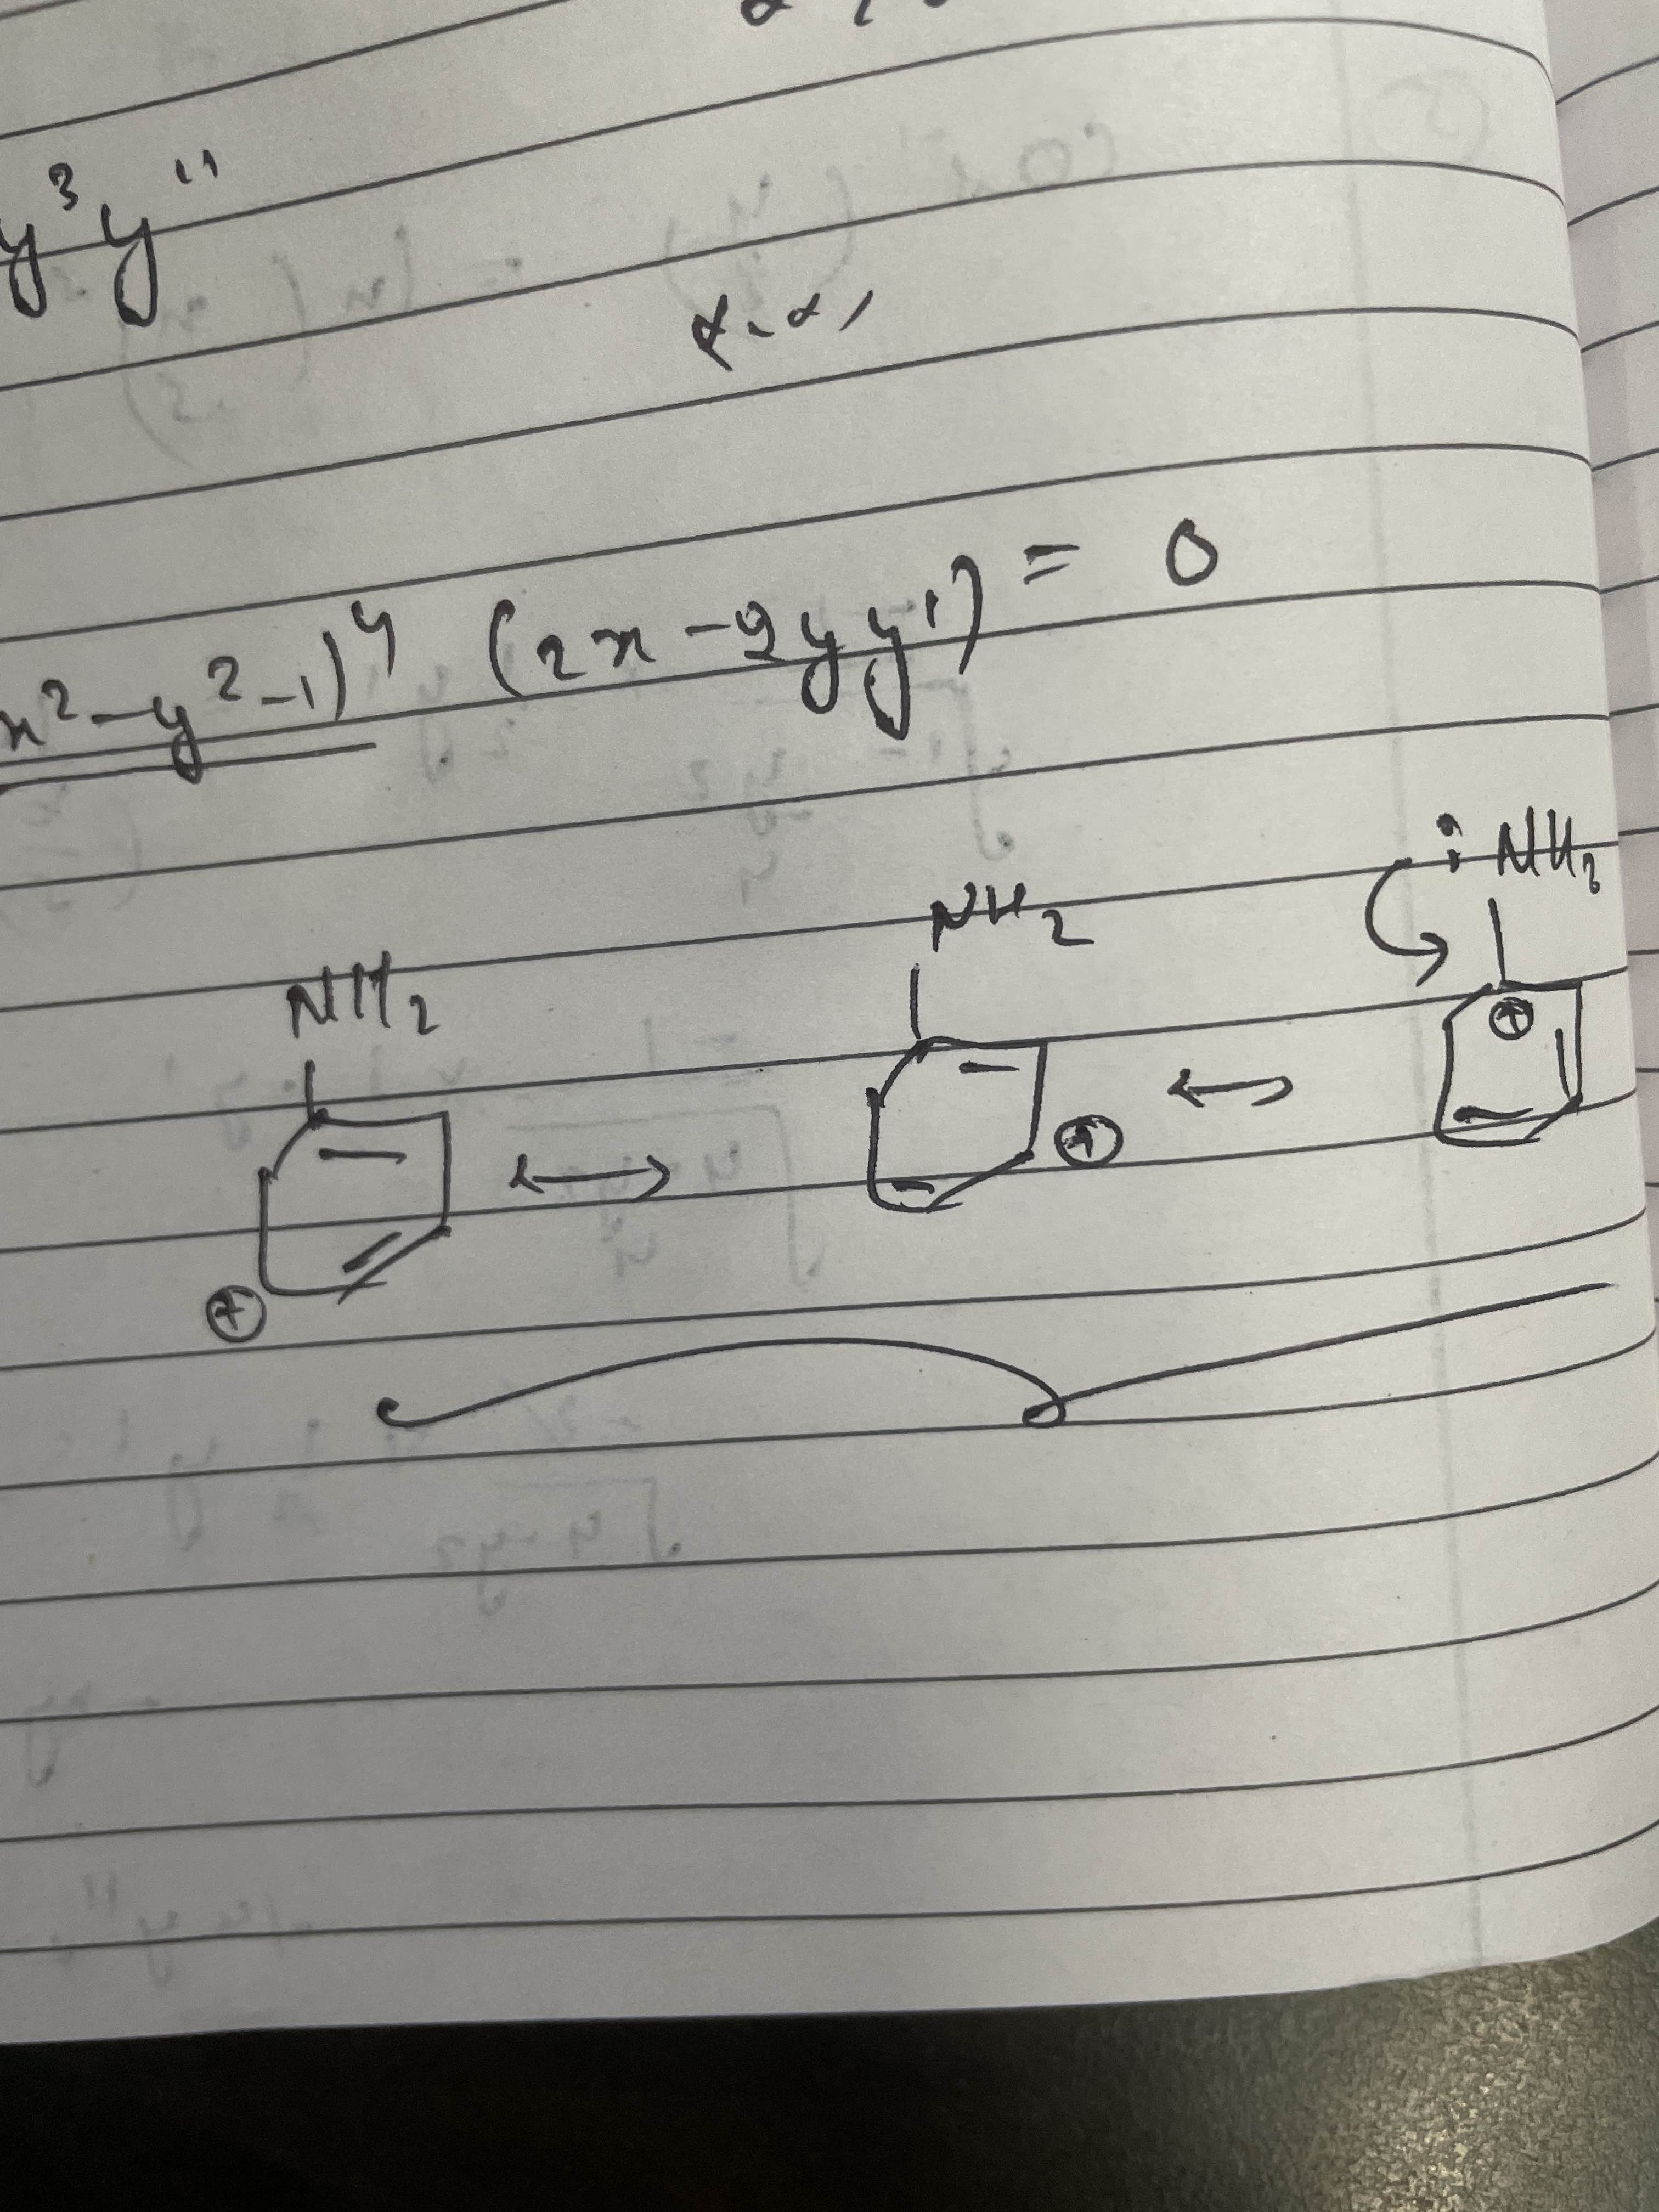 y³y''
x²-y²-1)⁴ (2x-2yy') = 0
NH₂ NH₂ : NH₂
⊕ ↔ ⊕ ↔ ⊕